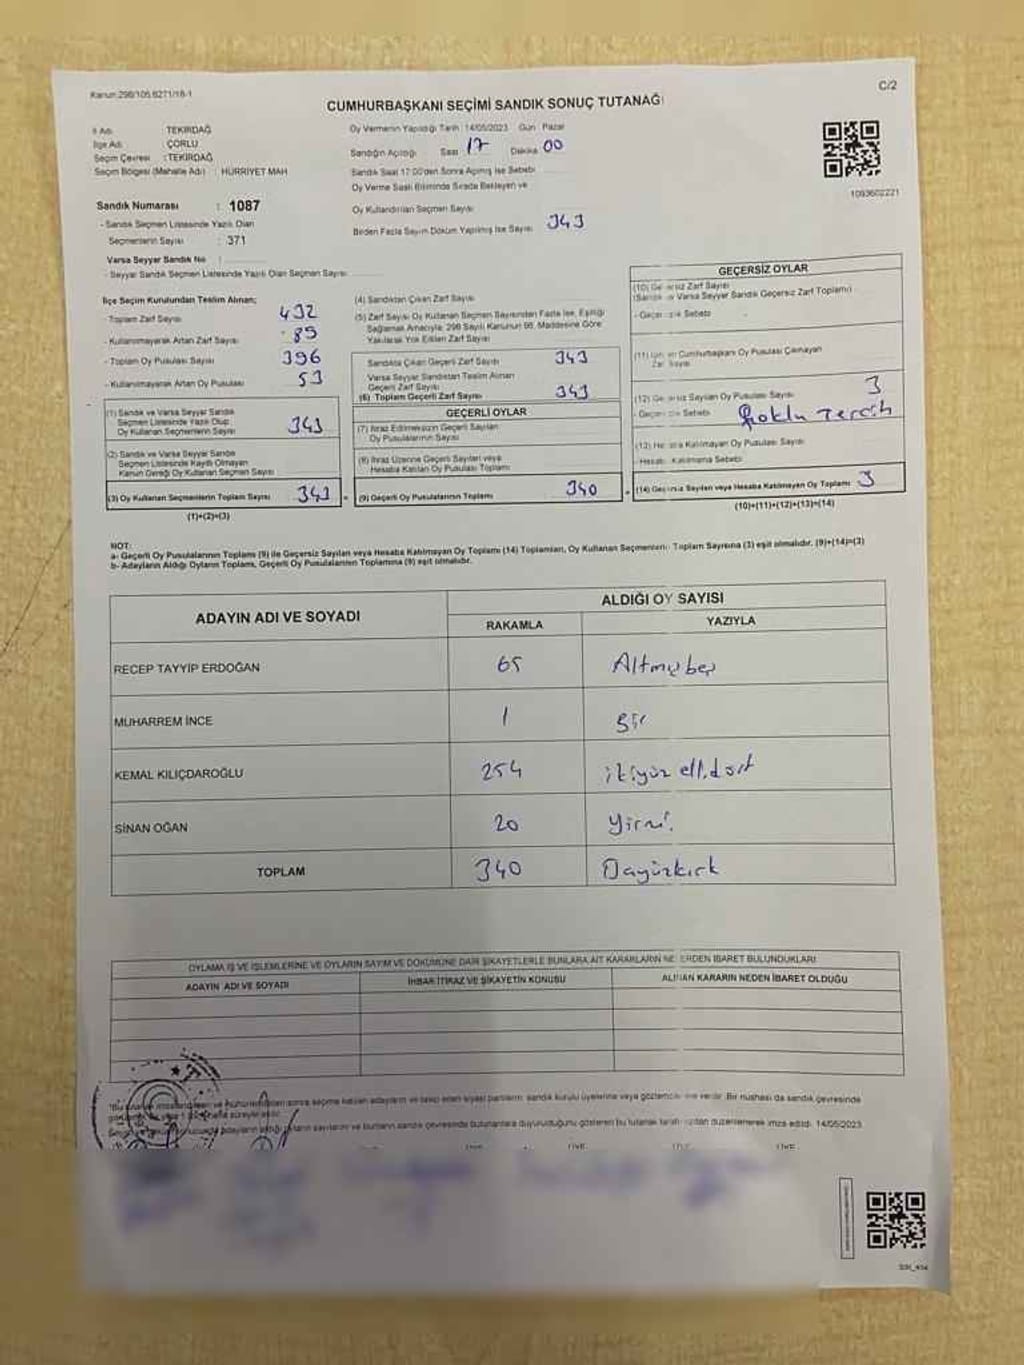 Kanun:298/105.6271/18-1
C/2
CUMHURBAŞKANI SEÇİMİ SANDIK SONUÇ TUTANAĞI
İl Adı TEKİRDAĞ
İlçe Adı ÇORLU
Seçim Çevresi : TEKİRDAĞ
Seçim Bölgesi (Mahalle Adı) : HÜRRİYET MAH
Sandık Numarası : 1087
- Sandık Seçmen Listesinde Yazılı Olan
Seçmenlerin Sayısı : 371
Varsa Seyyar Sandık No :
- Seyyar Sandık Seçmen Listesinde Yazılı Olan Seçmen Sayısı
Oy Vermenin Yapıldığı Tarih : 14/05/2023 Gün : Pazar
Sandığın Açıldığı Saat 17 Dakika 00
Sandık Saat 17:00'den Sonra Açılmış İse Sebebi
Oy Verme Saati Bitiminde Sırada Bekleyen ve
Oy Kullandırılan Seçmen Sayısı
Birden Fazla Sayım Döküm Yapılmış İse Sayısı 343
1093602221
İlçe Seçim Kurulundan Teslim Alınan;
- Toplam Zarf Sayısı 432
- Kullanılmayarak Artan Zarf Sayısı 89
- Toplam Oy Pusulası Sayısı 396
- Kullanılmayarak Artan Oy Pusulası 53
(1) Sandık ve Varsa Seyyar Sandık
Seçmen Listesinde Yazılı Olup
Oy Kullanan Seçmenlerin Sayısı 343
(2) Sandık ve Varsa Seyyar Sandık
Seçmen Listesinde Kayıtlı Olmayan
Kanun Gereği Oy Kullanan Seçmen Sayısı
(3) Oy Kullanan Seçmenlerin Toplam Sayısı 343
(1)+(2)=(3)
(4) Sandıktan Çıkan Zarf Sayısı
(5) Zarf Sayısı Oy Kullanan Seçmen Sayısından Fazla İse, Eşitliği
Sağlamak Amacıyla, 298 Sayılı Kanunun 98. Maddesine Göre
Yakılarak Yok Edilen Zarf Sayısı
Sandıkta Çıkan Geçerli Zarf Sayısı 343
Varsa Seyyar Sandıktan Teslim Alınan
Geçerli Zarf Sayısı
(6) Toplam Geçerli Zarf Sayısı 343
GEÇERLİ OYLAR
(7) İtiraz Edilmeksizin Geçerli Sayılan
Oy Pusulalarının Sayısı
(8) İtiraz Üzerine Geçerli Sayılan veya
Hesaba Katılan Oy Pusulası Toplamı
(9) Geçerli Oy Pusulalarının Toplamı 340
GEÇERSİZ OYLAR
(10) Geçersiz Zarf Sayısı
(Sandık ve Varsa Seyyar Sandık Geçersiz Zarf Toplamı)
- Geçersizlik Sebebi
(11) Cumhurbaşkanı Oy Pusulası Çıkmayan
Zarf Sayısı
(12) Geçersiz Sayılan Oy Pusulası Sayısı 3
- Geçersizlik Sebebi Çoklu Tercih
(13) Hesaba Katılmayan Oy Pusulası Sayısı
- Hesaba Katılmama Sebebi
(14) Geçersiz Sayılan veya Hesaba Katılmayan Oy Toplamı 3
(10)+(11)+(12)+(13)=(14)
NOT:
a- Geçerli Oy Pusulalarının Toplamı (9) ile Geçersiz Sayılan veya Hesaba Katılmayan Oy Toplamı (14) Toplamları, Oy Kullanan Seçmenlerin Toplam Sayısına (3) eşit olmalıdır. (9)+(14)=(3)
b- Adayların Aldığı Oyların Toplamı, Geçerli Oy Pusulalarının Toplamına (9) eşit olmalıdır.
ADAYIN ADI VE SOYADI ALDIĞI OY SAYISI
RAKAMLA YAZIYLA
RECEP TAYYİP ERDOĞAN 65 Altmışbeş
MUHARREM İNCE 1 Bir
KEMAL KILIÇDAROĞLU 254 ikiyüz ellidört
SİNAN OĞAN 20 Yirmi
TOPLAM 340 Üçyüzkırk
OYLAMA İŞ VE İŞLEMLERİNE VE OYLARIN SAYIM VE DÖKÜMÜNE DAİR ŞİKAYETLERLE BUNLARA AİT KARARLARIN NELERDEN İBARET BULUNDUKLARI
ADAYIN ADI VE SOYADI İHBAR İTİRAZ VE ŞİKAYETİN KONUSU ALINAN KARARIN NEDEN İBARET OLDUĞU
sonra seçime katılan adayların ve siyasi partilerin sandık kurulu üyelerine veya gözlemcilerine verilir. Bir nüshası da sandık çevresinde
bu tutanak tarafımızdan düzenlenerek imza edildi. 14/05/2023